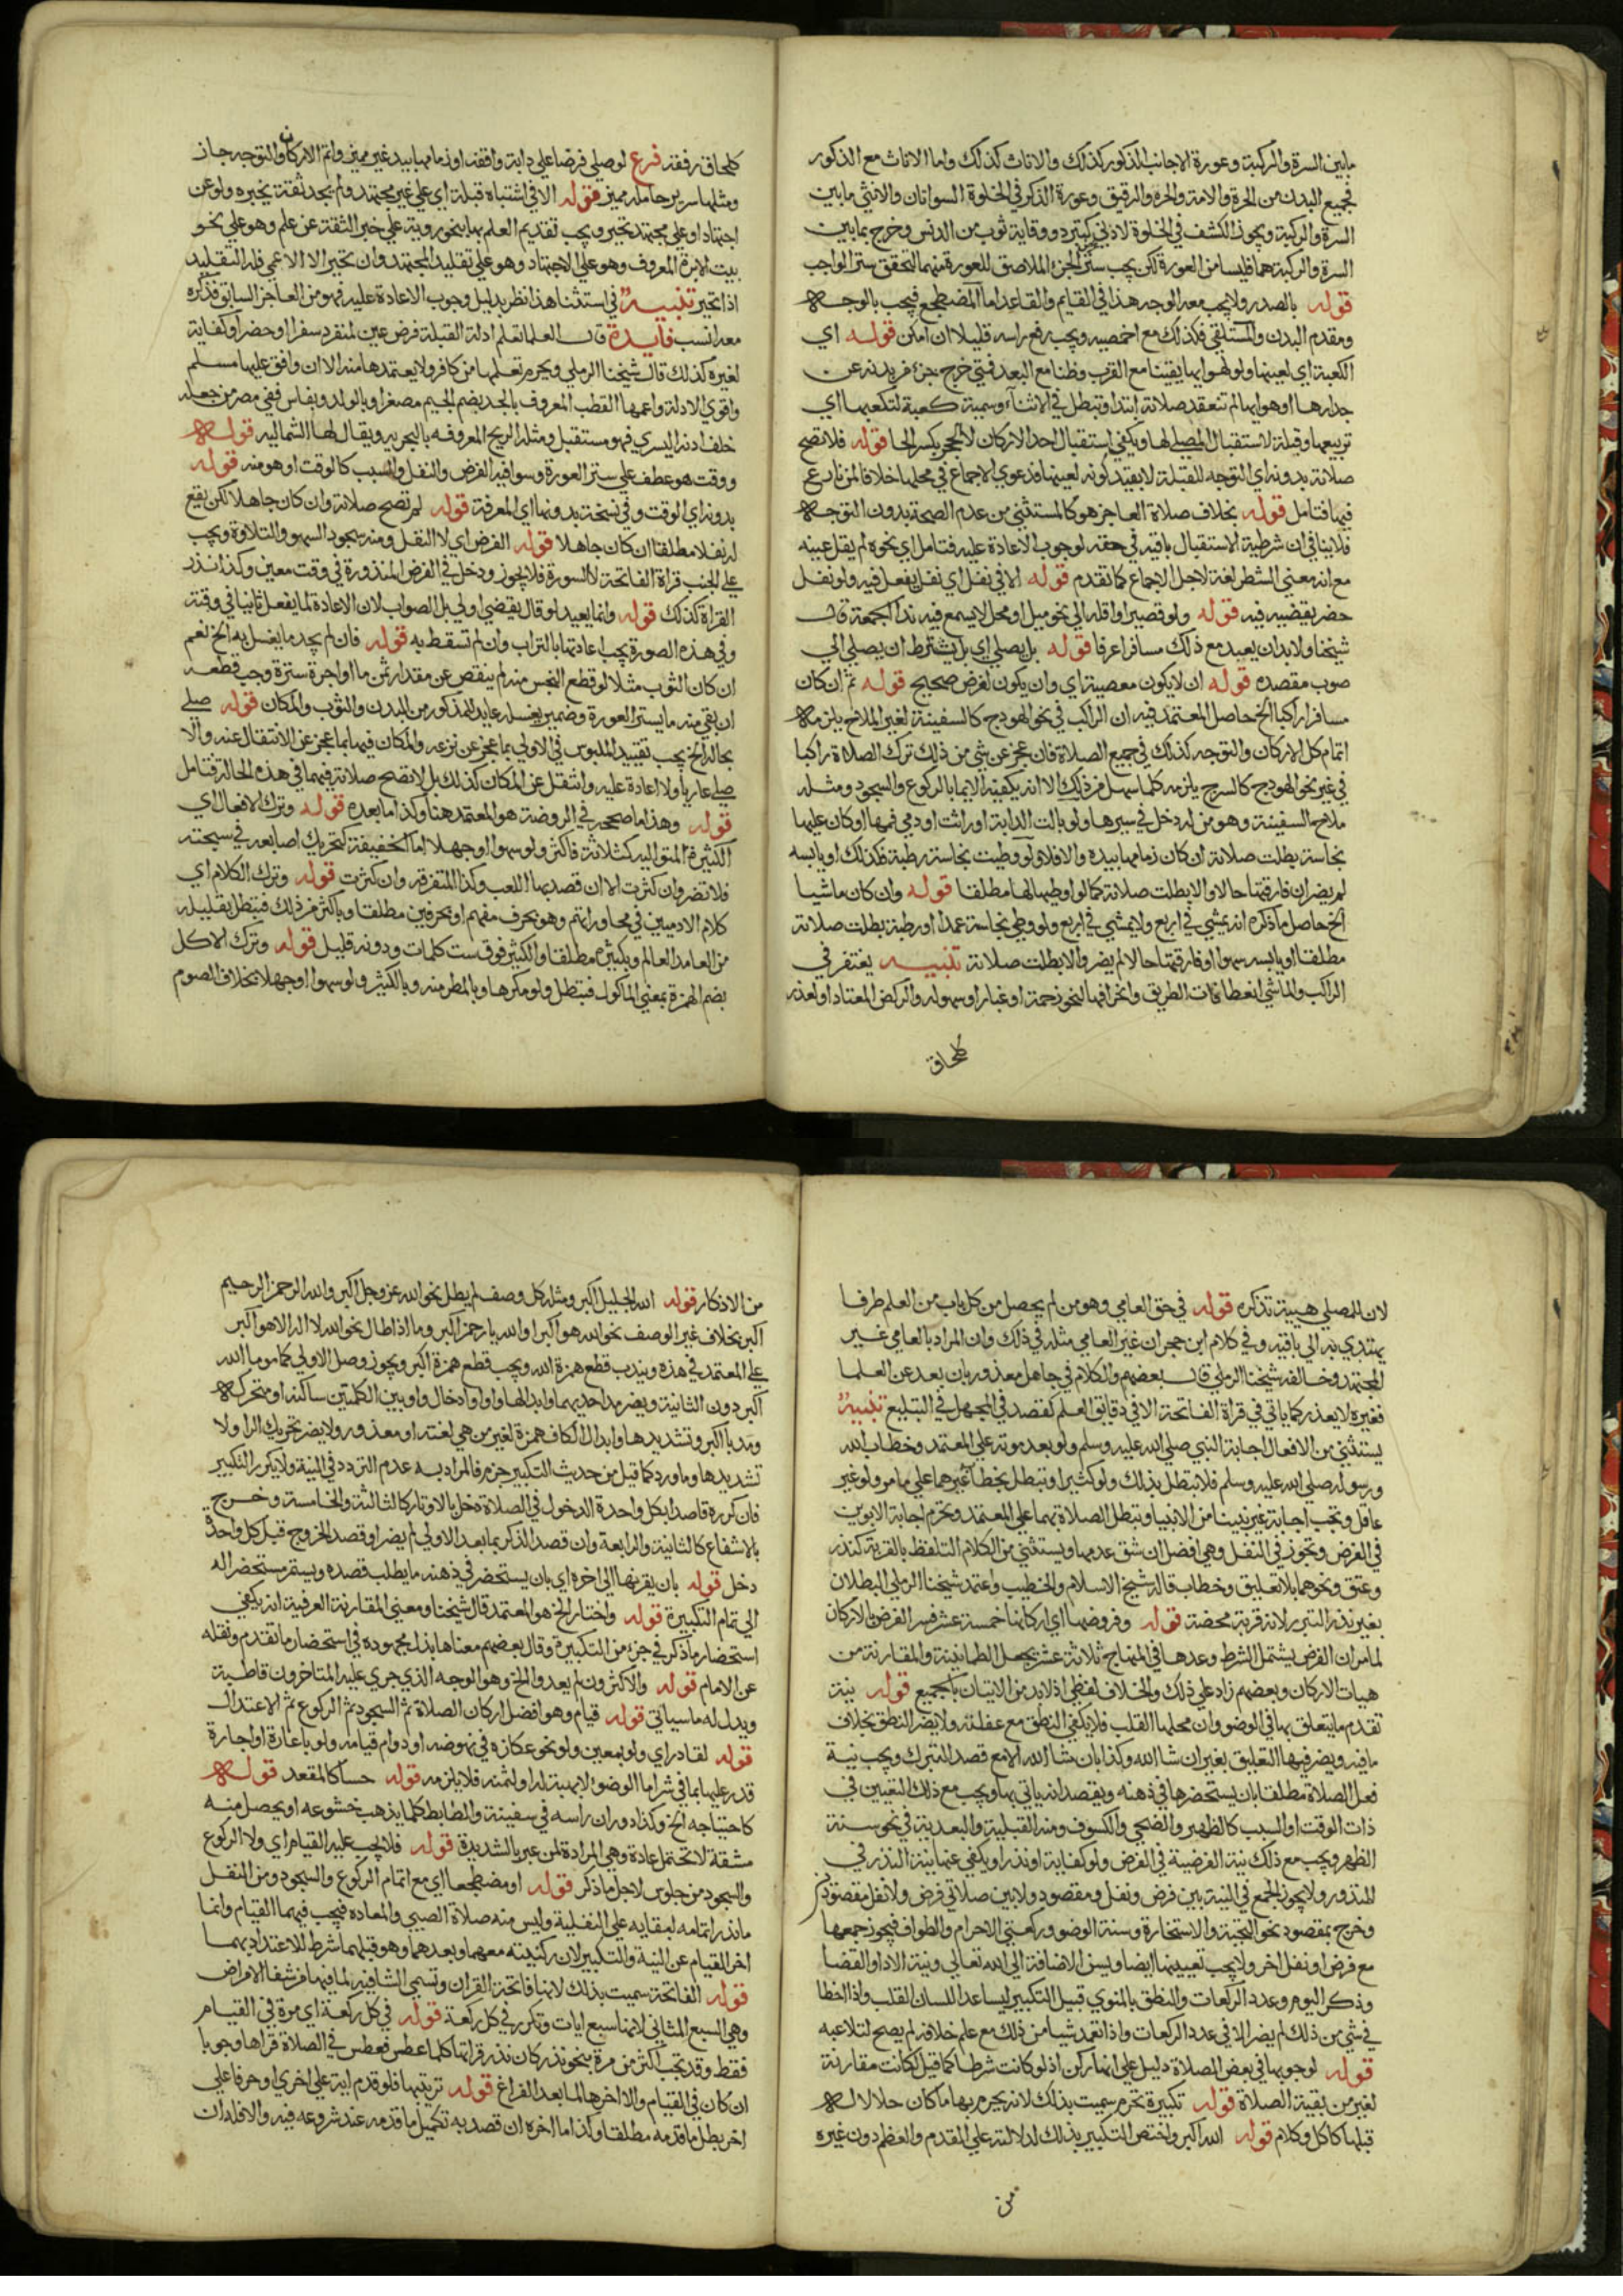 ما بين السرة والركبة وعورة الاجانب للذكور كذلك والاناث كذلك واما الاناث مع الذكور
فجميع البدن من الحرة والامة والحر والرقيق وعورة الذكر في الخلوة السوأتان والانثي ما بين
السرة والركبة ويجوز الكشف في الخلوة لادني كتبرد ووقاية ثوب من الدنس وخرج بما بين
السرة والركبة هما فليسا من العورة لكن يجب ستر الجزء الملاصق للعورة منهما لتحقق ستر الواجب
قوله بالصدر ولا يجب معه الوجه هذا في القايم والقاعد اما المضطجع فيجب بالوجه
ومقدم البدن والمستلقي فكذلك مع اخمصيه ويجب رفع راسه قليلا ان امكن قوله اي
الكعبة اي لعينها ولو لهوايها يقينا مع القرب وظنا مع البعد فمتي خرج بجزء من بدنه عن
جدارها او هوايها لم تنعقد صلاته ابتدا وتبطل في الاثناء وسميت كعبة لتكعبها اي
تربيعها وقبلة لاستقبال المصلي لها ويكفي استقبال احد الاركان لا الحجر بكسر الحا قوله فلا تصح
صلاته بدونه اي التوجه للقبلة لا بقيد كونه لعينها فدعوي الاجماع في محلها خلافا لمن نازع
فيها فتامل قوله بخلاف صلاة العاجز هو كالمستثني من عدم الصحة بدون التوجه
فلا ينافي ان شرطية الاستقبال باقية في حقه لوجوب الاعادة عليه فتامل اي نحوه لم يقل عينه
مع انه معني الشطر لغة لاجل الاجماع كما تقدم قوله الا في نفل اي نفل يفعل فيه ولو نفل
حضر يقضيه فيه قوله ولو قصيرا واقله الي نحو ميل او محل لا يسمع فيه ندا الجمعة قال
شيخنا ولا بد ان يعد مع ذلك مسافرا عرفا قوله بل يصلي اي بل يشترط ان يصلي الي
صوب مقصده قوله ان لا يكون معصية اي وان يكون لغرض صحيح قوله ثم ان كان
مسافرا راكبا الخ حاصل المعتمد فيه ان الراكب في نحو الهودج كالسفينة لغير الملاح يلزمه
اتمام كل الاركان والتوجه كذلك في جميع الصلاة فان عجز عن شي من ذلك ترك الصلاة راكبا
في غير نحو الهودج كالسرج يلزمه كلما سهل من ذلك الا انه يكفيه الايما بالركوع والسجود ومثله
ملاح السفينة وهو من له دخل في سيرها ولو بالت الدابة او راثت او دمي فمها او كان عليها
نجاسة بطلت صلاته ان كان زمامها بيده والا فلا ولو وطيت نجاسة رطبة فكذلك او يابسه
لم يضر ان فارقتها حالا والا بطلت صلاته كما لو اوطيها لها مطلقا قوله وان كان ماشيا
الخ حاصل ما ذكره انه يمشي في اربع ولا يمشي في اربع ولو وطي نجاسة عمدا او رطبة بطلت صلاته
مطلقا او يابسه سهوا او فارقها حالا لم يضر والا بطلت صلاته تنبيه يغتفر في
الراكب والماشي انعطافات الطريق وانحرافهما لنحو زحمة او غبار او سهوله والركض المعتاد او لعذر
كلحاق
كلحاق رفقه فرع لو صلي فرضا علي دابة واقفه او زمامها بيد غير مميز واتم الاركان والتوجه جاز
ومثلها سرير حامله مميز قوله الا في اشتباه قبلة اي علي غير مجتهد ولم يجد ثقة يخبره ولو عن
اجتهاد او علي مجتهد تحير ويجب تقديم العلم بها بنحو روية علي خبر الثقة عن علم وهو علي نحو
بيت الابرة المعروف وهو علي الاجتهاد وهو علي تقليد المجتهد وان تحير الا الاعمي فله التقليد
اذا تحير تنبيه في استثنا هذا نظر بدليل وجوب الاعادة عليه فهو من العاجز السابق فذكره
معه انسب فايدة قال العلما تعلم ادلة القبلة فرض عين لمنفرد سفرا او حضرا وكفاية
لغيره كذلك قال شيخنا الرملي ويحرم تعلمها من كافر ولا يعتمدها منه الا ان وافق عليها مسلم
واقوي الادلة واعمها القطب المعروف بالجدي بضم الجيم مصغرا وبالولد وبفاس ففي مصر من جعله
خلف اذنه اليسري فهو مستقبل ومثله الريح المعروفه بالبحريه ويقال لها الشماليه قوله
ووقت هو عطف علي ستر العورة وسوا فيه الفرض والنفل والسبب كالوقت او هو منه قوله
بدونه اي الوقت وفي نسخة بدونها اي المعرفة قوله لم تصح صلاته وان كان جاهلا لكن يقع
له نفلا مطلقا ان كان جاهلا قوله الفرض اي لا النفل ومنه سجود السهو والتلاوة ويجب
علي الجنب قراة الفاتحة لا السورة فلا يجوز ودخل في الفرض المنذورة في وقت معين وكذا نذر
القراة كذلك قوله وانما يعيد لو قال يقضي اولي بل الصواب لان الاعادة لما يفعل ثانيا في وقته
وفي هذه الصورة يجب اعادتها بالتراب وان لم تسقط به قوله فان لم يجد ما يغسل به الخ نعم
ان كان الثوب مثلا لو قطع النجس منه لم ينقص عن مقدار ثمن ما او اجرة سترة وجب قطعه
ان بقي منه ما يستر العورة وضمير يغسله عايد للمذكور من البدن والثوب والمكان قوله صلي
بحاله الخ يجب تقييد الملبوس في الاولي بما عجز عن نزعه والمكان فيها بما عجز عن الانتقال عنه والا
صلي عاريا ولا اعادة عليه وانتقل عن المكان كذلك بل لا تصح صلاته فيهما في هذه الحالة فتامل
قوله وهذا ما صححه في الروضة هو المعتمد هنا وكذا ما بعده قوله وترك الافعال اي
الكثيرة المتواليه كثلاثة فاكثر ولو سهوا او جهلا اما الخفيفة كتحريك اصابعه في سبحته
فلا تضر وان كثرت الا ان قصد بها اللعب وكذا المتفرقه وان كثرت قوله وترك الكلام اي
كلام الادميين في محاوراتهم وهو بحرف مفهم او بحرفين مطلقا وباكثر من ذلك فتبطل بقليله
من العامد العالم وبكثيره مطلقا والكثير فوق ست كلمات ودونه قليل قوله وترك الاكل
بضم الهمزة بمعني الماكول فتبطل ولو مكرها وبالمطر منه وبالكثير ولو سهوا او جهلا بخلاف الصوم
لان للمصلي هيية تذكره قوله في حق العامي وهو من لم يحصل من كل باب من العلم طرفا
يهتدي به الي باقيه وفي كلام ابن حجر ان غير العامي مثله في ذلك وان المراد بالعامي غير
المجتهد وخالفه شيخنا الرملي قال بعضهم والكلام في جاهل معذور بان بعد عن العلما
فغيره لا يعذر كما ياتي في قراة الفاتحة الا في دقايق العلم كقصد في الجهل في التبليغ تنبيه
يستثني من الافعال اجابة النبي صلي الله عليه وسلم ولو بعد موته علي المعتمد وخطاب الله
ورسوله صلي الله عليه وسلم فلا تبطل بذلك ولو كثيرا وتبطل بخطاب غيرهما علي ما مر ولو غير
عاقل وتجب اجابة غير نبينا من الانبيا وتبطل الصلاة بهما علي المعتمد وتحرم اجابة الابوين
في الفرض وتجوز في النفل وهي افضل ان شق عدمها ويستثني من الكلام التلفظ بالقربة كنذر
وعتق ونحوهما بلا تعليق وخطاب قاله شيخ الاسلام والخطيب وعتمد شيخنا الرملي البطلان
بغير نذر التبرر لانه قربة محضة قوله وفروضها اي اركانها خمسة عشر فسر الفرض بالاركان
لما مر ان الفرض يشتمل الشرط وعدها في المنهاج ثلاثة عشر بجعل الطمانينة والمقارنة من
هيات الاركان وبعضهم زاد علي ذلك والخلاف لفظي اذ لا بد من الاتيان بالجميع قوله نية
تقدم ما يتعلق بها في الوضو وان محلها القلب فلا يكفي النطق مع غفلته ولا يضر النطق بخلاف
ما فيه ويضر فيها التعليق بغير ان شا الله وكذا بان شا الله الا مع قصد التبرك ويجب نية
فعل الصلاة مطلقا بان يستحضرها في ذهنه ويقصد انه ياتي بها ويجب مع ذلك التعيين في
ذات الوقت او السبب كالظهر والضحي والكسوف ومنه القبلية والبعدية في نحو سنة
الظهر ويجب مع ذلك نية الفرضية في الفرض ولو كفاية او نذرا ويكفي عنها نية النذر في
المنذور ولا يجوز الجمع في النية بين فرض ونفل ومقصود ولا بين صلاتي فرض ولا نفل مقصود
وخرج بمقصود نحو التحية والاستخارة وسنة الوضو وركعتي الاحرام والطواف فيجوز جمعها
مع فرض او نفل اخر ولا يجب تعيينها ايضا ويسن الاضافة الي الله تعالي ونية الادا والقضا
وذكر اليوم وعدد الركعات والنطق بالمنوي قبيل التكبير ليساعد اللسان القلب واذا اخطا
في شي من ذلك لم يضر الا في عدد الركعات واذا تعمد شيا من ذلك مع علم خلافه لم يصح لتلاعبه
قوله لوجوبها في بعض الصلاة دليل علي انها ركن اذ لو كانت شرطا كما قيل لكانت مقارنة
لغير من بقية الصلاة قوله تكبيرة تحرم سميت بذلك لانه يحرم بها ما كان حلالا له
قبلها كاكل وكلام قوله الله اكبر واختص التكبير بذلك لدلالته علي المقدم والعظم دون غيره
من
من الاذكار قوله الله الجليل اكبر ومثله كل وصف لم يطل نحو الله عز وجل اكبر والله الرحمن الرحيم
اكبر بخلاف غير الوصف نحو الله هو اكبر او والله يا رحمن اكبر وما اذا طال نحو الله لا اله الا هو اكبر
علي المعتمد في هذه ويندب قطع همزة الله ويجب قطع همزة اكبر ويجوز وصل الاولي كماموما الله
اكبر دون الثانية ويضر مد احديهما وابدالها واوا وادخال واو بين الكلمتين ساكنه او متحركه
ومد با اكبر وتشديدها وابدال الكاف همزة لغير من هي لغته او معذور ولا يضر تحريك الرا ولا
تشديدها وما ورد كما قيل من حديث التكبير جزم فالمراد به عدم التردد في النية ولا يكرر التكبير
فان كرره قاصدا بكل واحدة الدخول في الصلاة دخل بالاوتار كالثالثة والخامسة وخرج
بالاشفاع كالثانية والرابعة وان قصد الذكر بما بعد الاولي لم يضر او قصد الخروج قبل كل واحدة
دخل قوله بان يقرنها الي اخره اي بان يستحضر في ذهنه ما يطلب قصده ويستمر مستحضرا له
الي تمام التكبيرة قوله واختار الخ هو المعتمد قال شيخنا ومعني المقارنة العرفية انه يكفي
استحضار ما ذكر في جزء من التكبيرة وقال بعضهم معناها بذل مجهوده في استحضار ما تقدم ونقله
عن الامام قوله والاكثرون لم يعدوا الخ وهو الوجه الذي جري عليه المتاخرون قاطبة
ويدل له ما سياتي قوله قيام وهو افضل اركان الصلاة ثم السجود ثم الركوع ثم الاعتدال
قوله لقادر اي ولو بمعين ولو نحو عكازه في نهوضه او دوام قيامه ولو باعارة او اجارة
قدر عليها بما في شرا ما الوضو لا بهبة له او لثمنه فلا يلزمه قوله حسا كالمقعد قوله
كاحتياجه الخ وكذا دوران راسه في سفينة والضابط كلما يذهب خشوعه او يحصل منه
مشقة لا تحتمل عادة وهي المرادة لمن عبر بالشديدة قوله فلا يجب عليه القيام اي ولا الركوع
والسجود من جلوس لاجل ما ذكر قوله او مضطجعا اي مع اتمام الركوع والسجود ومن النفل
ما نذر اتمامه لبقايه علي النفلية وليس منه صلاة الصبي والمعاده فيجب فيهما القيام وانما
اخر القيام عن النية والتكبير لان ركنيته معهما وبعدهما وهو قبلهما شرط للاعتداد بهما
قوله الفاتحة سميت بذلك لانها فاتحة القران وتسمي الشافيه لما فيها من شفا الامراض
وهي السبع المثاني لانها سبع ايات وتكرر في كل ركعة قوله في كل ركعة اي مرة في القيام
فقط وقد تجب اكثر من مرة بنحو نذر كان نذر قراتها كلما عطس فعطس في الصلاة قراها وجوبا
ان كان في القيام والا اخرها لما بعد الفراغ قوله ترتيبها فلو قدم اية علي اخري او حرفا علي
اخر بطل ما قدمه مطلقا وكذا ما اخره ان قصد به تكميل ما قدمه عند شروعه فيه والا فلا ان